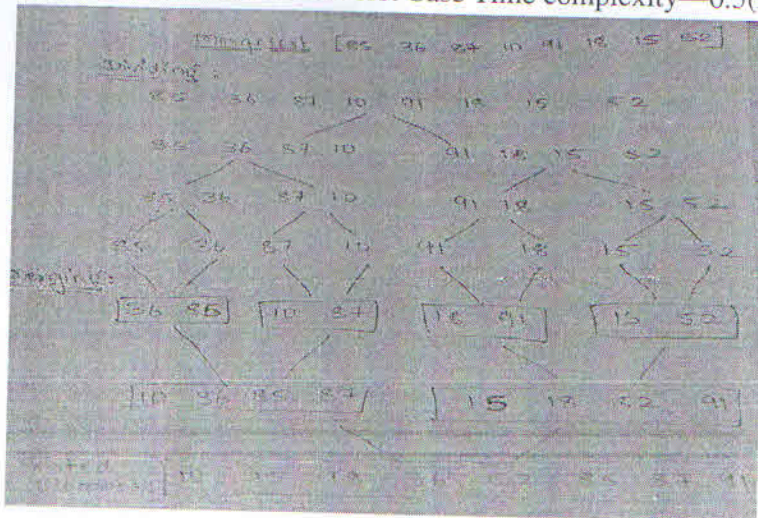 Case Time complexity—0.5(
Mergesort [85 36 87 10 91 18 15 52]
Dividing:
85 36 87 10 91 18 15 52
85 36 87 10 91 18 15 52
85 36 87 10 91 18 15 52
85 36 87 10 91 18 15 52
merging:
36 85 10 87 18 91 15 52
10 36 85 87 15 18 52 91
sorted 10 15 18 36 52 85 87 91